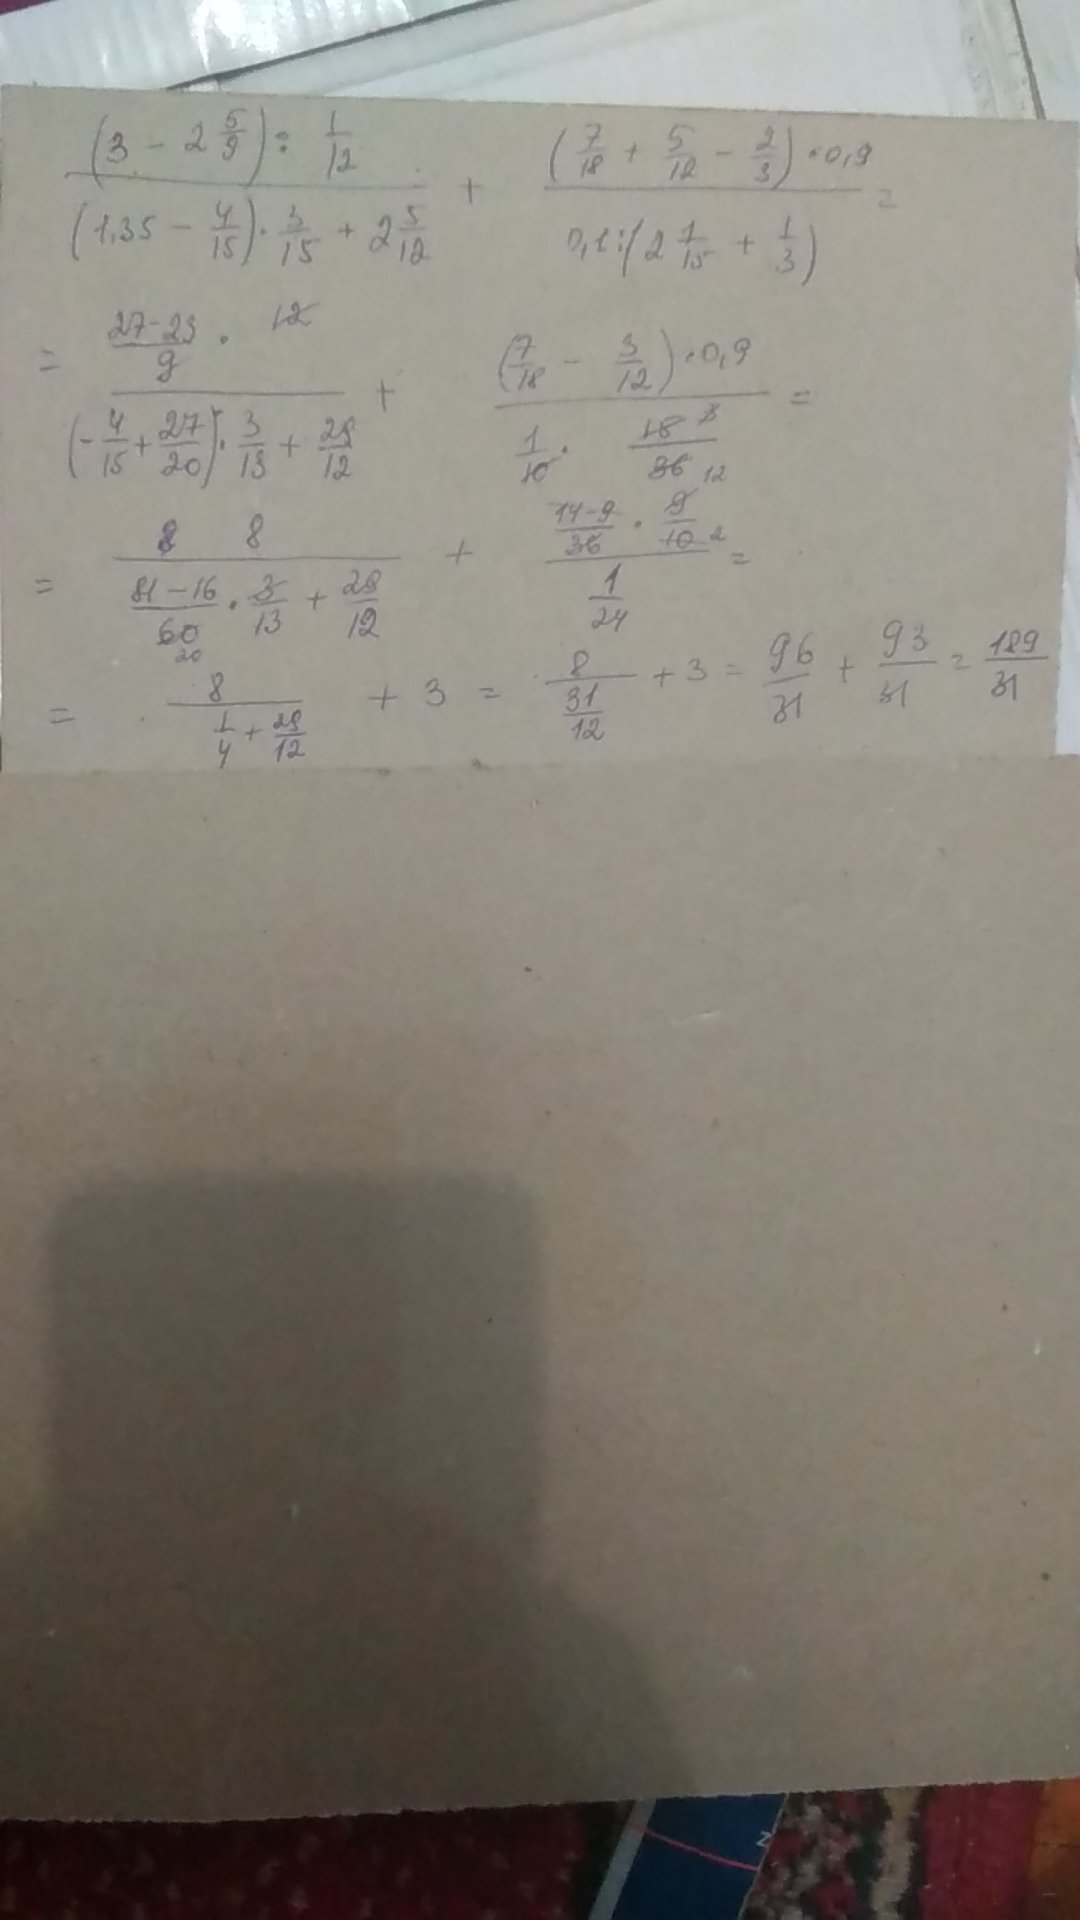 (3 - 2 5/9) : 1/12 / (1,35 - 4/15) · 3/15 + 2 5/12 + (7/18 + 5/12 - 2/3) · 0,9 / 0,1 : (2 1/15 + 1/3) =
= 27-23/9 · 12 / (-4/15 + 27/20) · 3/13 + 29/12 + (7/18 - 3/12) · 0,9 / 1/10 · 15/36 12 =
= 8 / 81-16/60 20 · 3/13 + 29/12 + 14-9/36 · 9/10 2 / 1/24 =
= 8 / 1/4 + 29/12 + 3 = 8 / 31/12 + 3 = 96/31 + 93/31 = 189/31